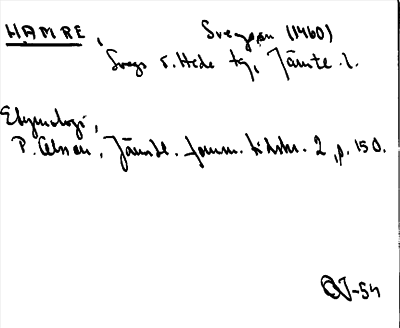 HAMRE, Svegsån (1460)
Svegs s. Hede tg, Jämte. l.
Etymologi,
P. Olsson, Jämtl. fornm. tidskr. 2, p. 150.